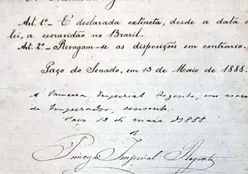 Art. 1º — É declarada extincta, desde a data
lei, a escravidão no Brazil.
Art. 2º — Revogam-se as disposições em contrario.
Paço do Senado, em 13 de Maio de 1888.
A Princeza Imperial Regente, em nome
do Imperador, consente.
Paço 13 de maio de 1888
Princeza Imperial Regente